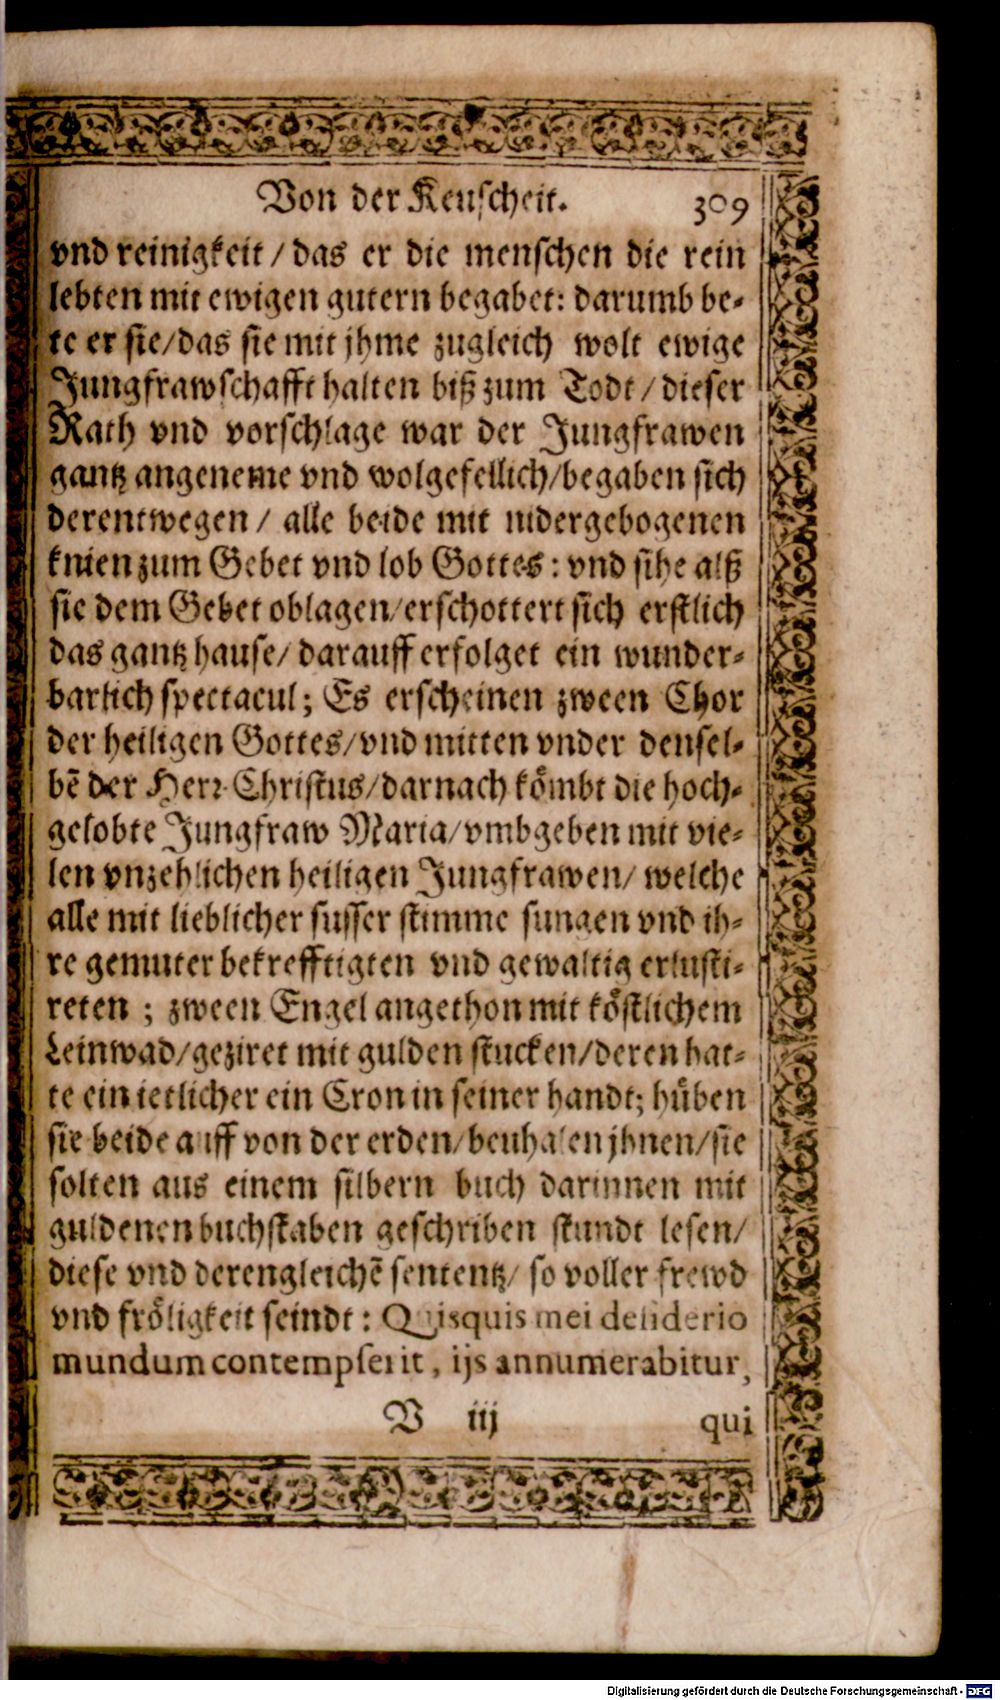 Von der Keuscheit. 309
vnd reinigkeit / das er die menschen die rein
lebten mit ewigen gutern begabet: darumb be-
te er sie/das sie mit jhme zugleich wolt ewige
Jungfrawschafft halten biß zum Todt / dieser
Rath vnd vorschlage war der Jungfrawen
gantz angeneme vnd wolgefellich/begaben sich
derentwegen / alle beide mit nidergebogenen
knien zum Gebet vnd lob Gottes : vnd sihe alß
sie dem Gebet oblagen/erschottert sich erstlich
das gantz hause/ darauff erfolget ein wunder-
barlich spectacul; Es erscheinen zween Chor
der heiligen Gottes/vnd mitten vnder densel-
bē der Herr Christus/darnach koͤmbt die hoch-
gelobte Jungfraw Maria/vmbgeben mit vie-
len vnzehlichen heiligen Jungfrawen/ welche
alle mit lieblicher susser stimme sungen vnd ih-
re gemuter bekrefftigten vnd gewaltig erlusti-
reten ; zween Engel angethon mit koͤstlichem
Leinwad/geziret mit gulden stucken/deren hat-
te ein ietlicher ein Cron in seiner handt; huͤben
sie beide auff von der erden/beuhalen jhnen/sie
solten aus einem silbern buch darinnen mit
guldenen buchstaben geschriben stundt lesen/
diese vnd derengleichē sententz/ so voller frewd
vnd froͤligkeit seindt : Quisquis mei desiderio
mundum contempserit, ijs annumerabitur,
V iij qui
Digitalisierung gefördert durch die Deutsche Forschungsgemeinschaft - DFG